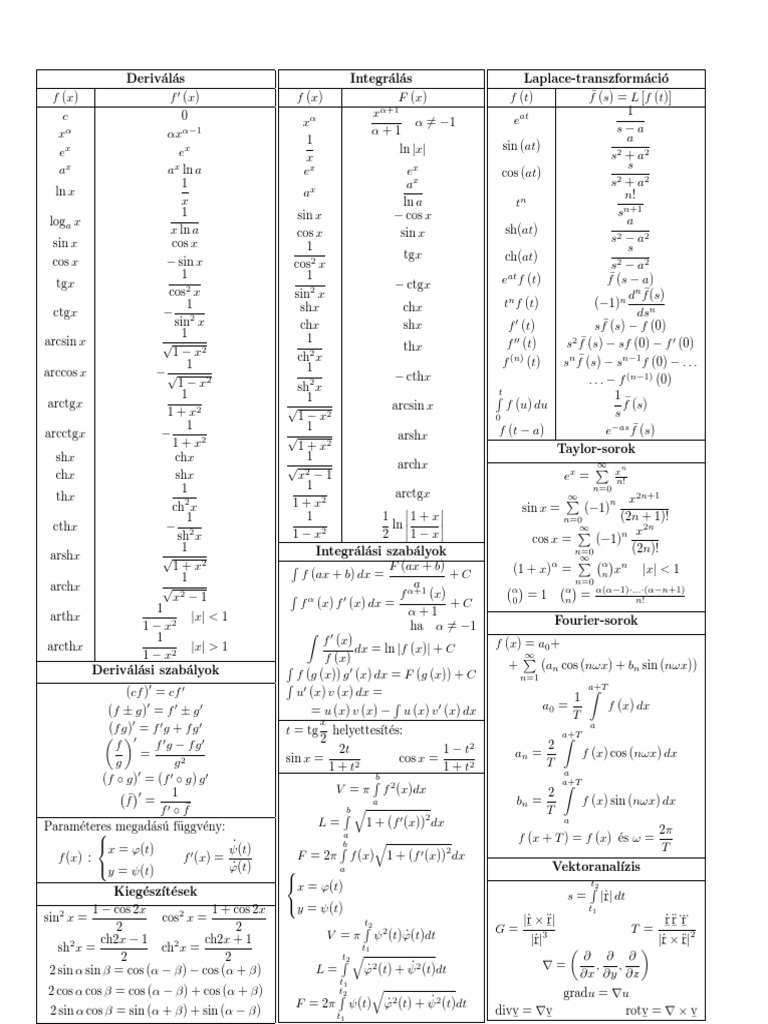 Deriválás
f (x) f′ (x)
c 0
x^α αx^{α−1}
e^x e^x
a^x a^x ln a
ln x 1/x
log_a x 1/(x ln a)
sin x cos x
cos x − sin x
tgx 1/cos² x
ctgx −1/sin² x
arcsin x 1/√(1 − x²)
arccos x −1/√(1 − x²)
arctgx 1/(1 + x²)
arcctgx −1/(1 + x²)
shx chx
chx shx
thx 1/ch²x
cthx −1/sh²x
arshx 1/√(1 + x²)
archx 1/√(x² − 1)
arthx 1/(1 − x²) |x| < 1
arcthx 1/(1 − x²) |x| > 1
Deriválási szabályok
(cf)′ = cf′
(f ± g)′ = f′ ± g′
(fg)′ = f′g + fg′
(f/g)′ = (f′g − fg′)/g²
(f ∘ g)′ = (f′ ∘ g) g′
(f̄)′ = 1/(f′ ∘ f̄)
Paraméteres megadású függvény:
f(x) : { x = φ(t) y = ψ(t) f′(x) = ψ̇(t)/φ̇(t)
Kiegészítések
sin² x = (1 − cos 2x)/2 cos² x = (1 + cos 2x)/2
sh²x = (ch2x − 1)/2 ch²x = (ch2x + 1)/2
2 sin α sin β = cos (α − β) − cos (α + β)
2 cos α cos β = cos (α − β) + cos (α + β)
2 sin α cos β = sin (α + β) + sin (α − β)
Integrálás
f (x) F (x)
x^α x^{α+1}/(α + 1) α ≠ −1
1/x ln |x|
e^x e^x
a^x a^x/ln a
sin x − cos x
cos x sin x
1/cos² x tgx
1/sin² x − ctgx
shx chx
chx shx
1/ch²x thx
1/sh²x − cthx
1/√(1 − x²) arcsin x
1/√(1 + x²) arshx
1/√(x² − 1) archx
1/(1 + x²) arctgx
1/(1 − x²) 1/2 ln |(1 + x)/(1 − x)|
Integrálási szabályok
∫ f (ax + b) dx = F (ax + b)/a + C
∫ f^α (x) f′ (x) dx = f^{α+1} (x)/(α + 1) + C
ha α ≠ −1
∫ f′ (x)/f (x) dx = ln |f (x)| + C
∫ f (g (x)) g′ (x) dx = F (g (x)) + C
∫ u′ (x) v (x) dx =
= u (x) v (x) − ∫ u (x) v′ (x) dx
t = tg x/2 helyettesítés:
sin x = 2t/(1 + t²) cos x = (1 − t²)/(1 + t²)
V = π ∫_a^b f²(x)dx
L = ∫_a^b √(1 + (f′(x))²)dx
F = 2π ∫_a^b f(x)√(1 + (f′(x))²)dx
{ x = φ(t)
y = ψ(t)
V = π ∫_{t₁}^{t₂} ψ²(t)φ̇(t)dt
L = ∫_{t₁}^{t₂} √(φ̇²(t) + ψ̇²(t))dt
F = 2π ∫_{t₁}^{t₂} ψ(t)√(φ̇²(t) + ψ̇²(t))dt
Laplace-transzformáció
f (t) f̄ (s) = L [f (t)]
e^{at} 1/(s − a)
sin (at) a/(s² + a²)
cos (at) s/(s² + a²)
t^n n!/s^{n+1}
sh(at) a/(s² − a²)
ch(at) s/(s² − a²)
e^{at} f (t) f̄ (s − a)
t^n f (t) (−1)^n d^n f̄(s)/ds^n
f′ (t) s f̄ (s) − f (0)
f″ (t) s² f̄ (s) − sf (0) − f′ (0)
f^{(n)} (t) s^n f̄ (s) − s^{n−1} f (0) − …
… − f^{(n−1)} (0)
∫_0^t f (u) du 1/s f̄ (s)
f (t − a) e^{−as} f̄ (s)
Taylor-sorok
e^x = ∑_{n=0}^∞ x^n/n!
sin x = ∑_{n=0}^∞ (−1)^n x^{2n+1}/(2n + 1)!
cos x = ∑_{n=0}^∞ (−1)^n x^{2n}/(2n)!
(1 + x)^α = ∑_{n=0}^∞ (α n) x^n |x| < 1
(α 0) = 1 (α n) = α(α−1)·…·(α−n+1)/n!
Fourier-sorok
f (x) = a₀+
+ ∑_{n=1}^∞ (a_n cos (nωx) + b_n sin (nωx))
a₀ = 1/T ∫_a^{a+T} f (x) dx
a_n = 2/T ∫_a^{a+T} f (x) cos (nωx) dx
b_n = 2/T ∫_a^{a+T} f (x) sin (nωx) dx
f (x + T) = f (x) és ω = 2π/T
Vektoranalízis
s = ∫_{t₁}^{t₂} |ṙ| dt
G = |ṙ × r̈|/|ṙ|³ T = ṙ r̈ r⃛/|ṙ × r̈|²
∇ = (∂/∂x, ∂/∂y, ∂/∂z)
gradu = ∇u
divv̲ = ∇v̲ rotv̲ = ∇ × v̲